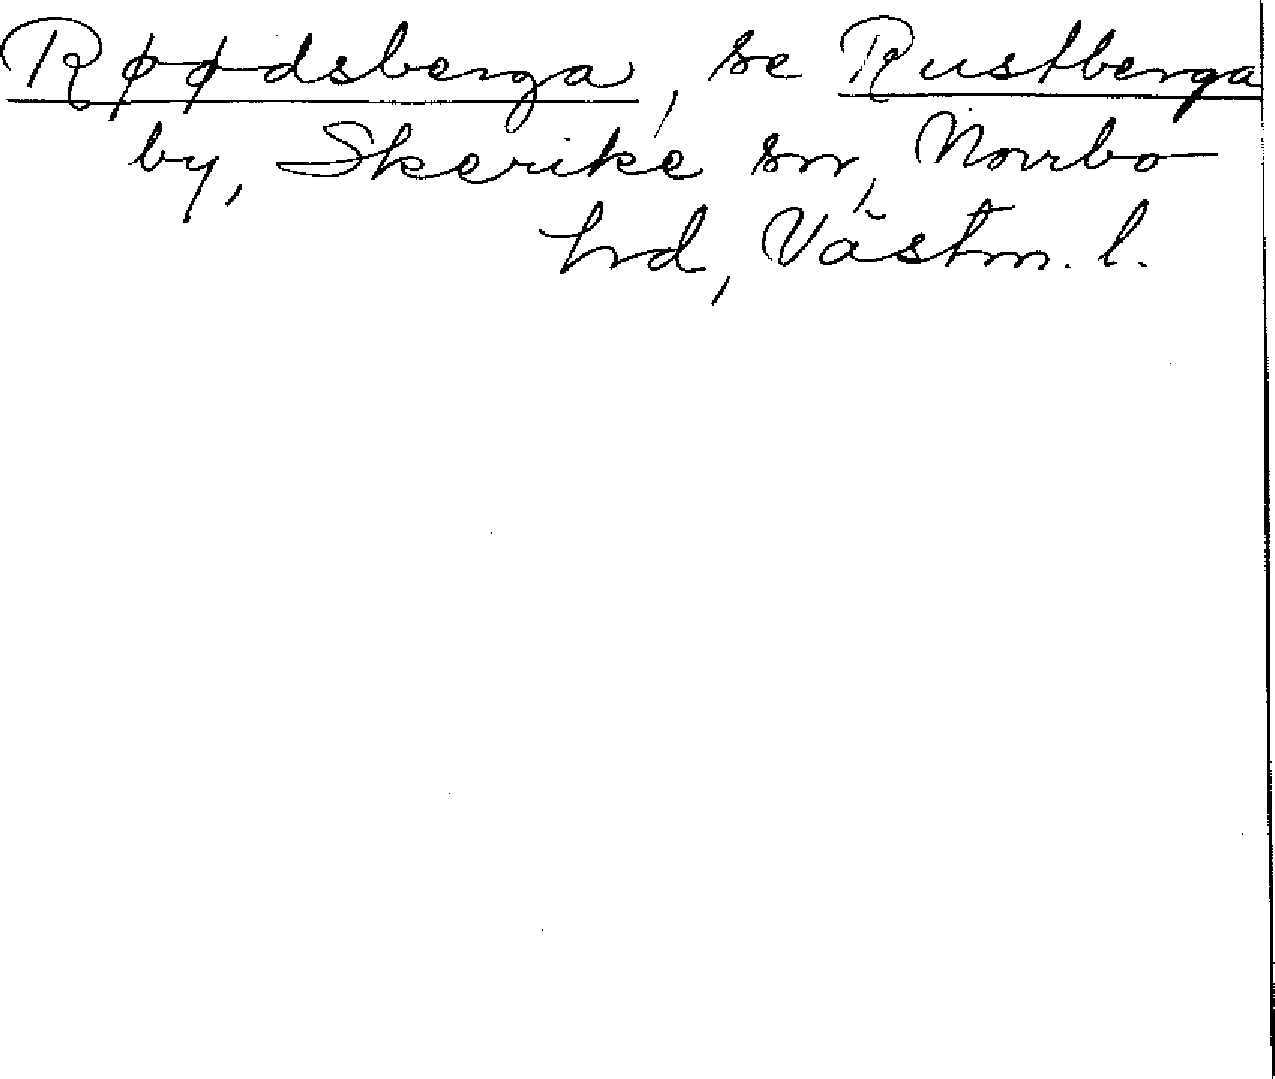 Røødsberga, se Rustberga
by, Skerike sn, Norrbo
hd, Västm. l.